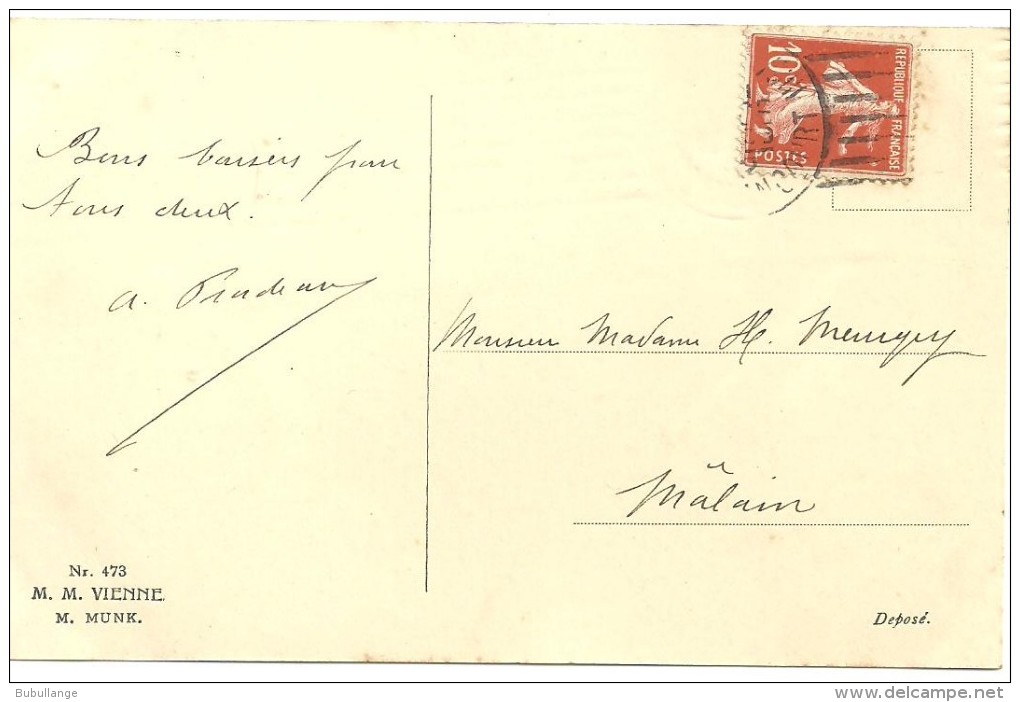 Bons baisers pour
Tous deux.
A. Pradeau
10c
REPUBLIQUE FRANÇAISE
POSTES
Monsieur Madame H. Meurgey
Mâlain
Nr. 473
M. M. VIENNE.
M. MUNK.
Deposé.
Bubullange
delcampe.net